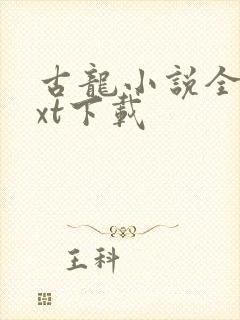 古龍小說全
xt下載
王科